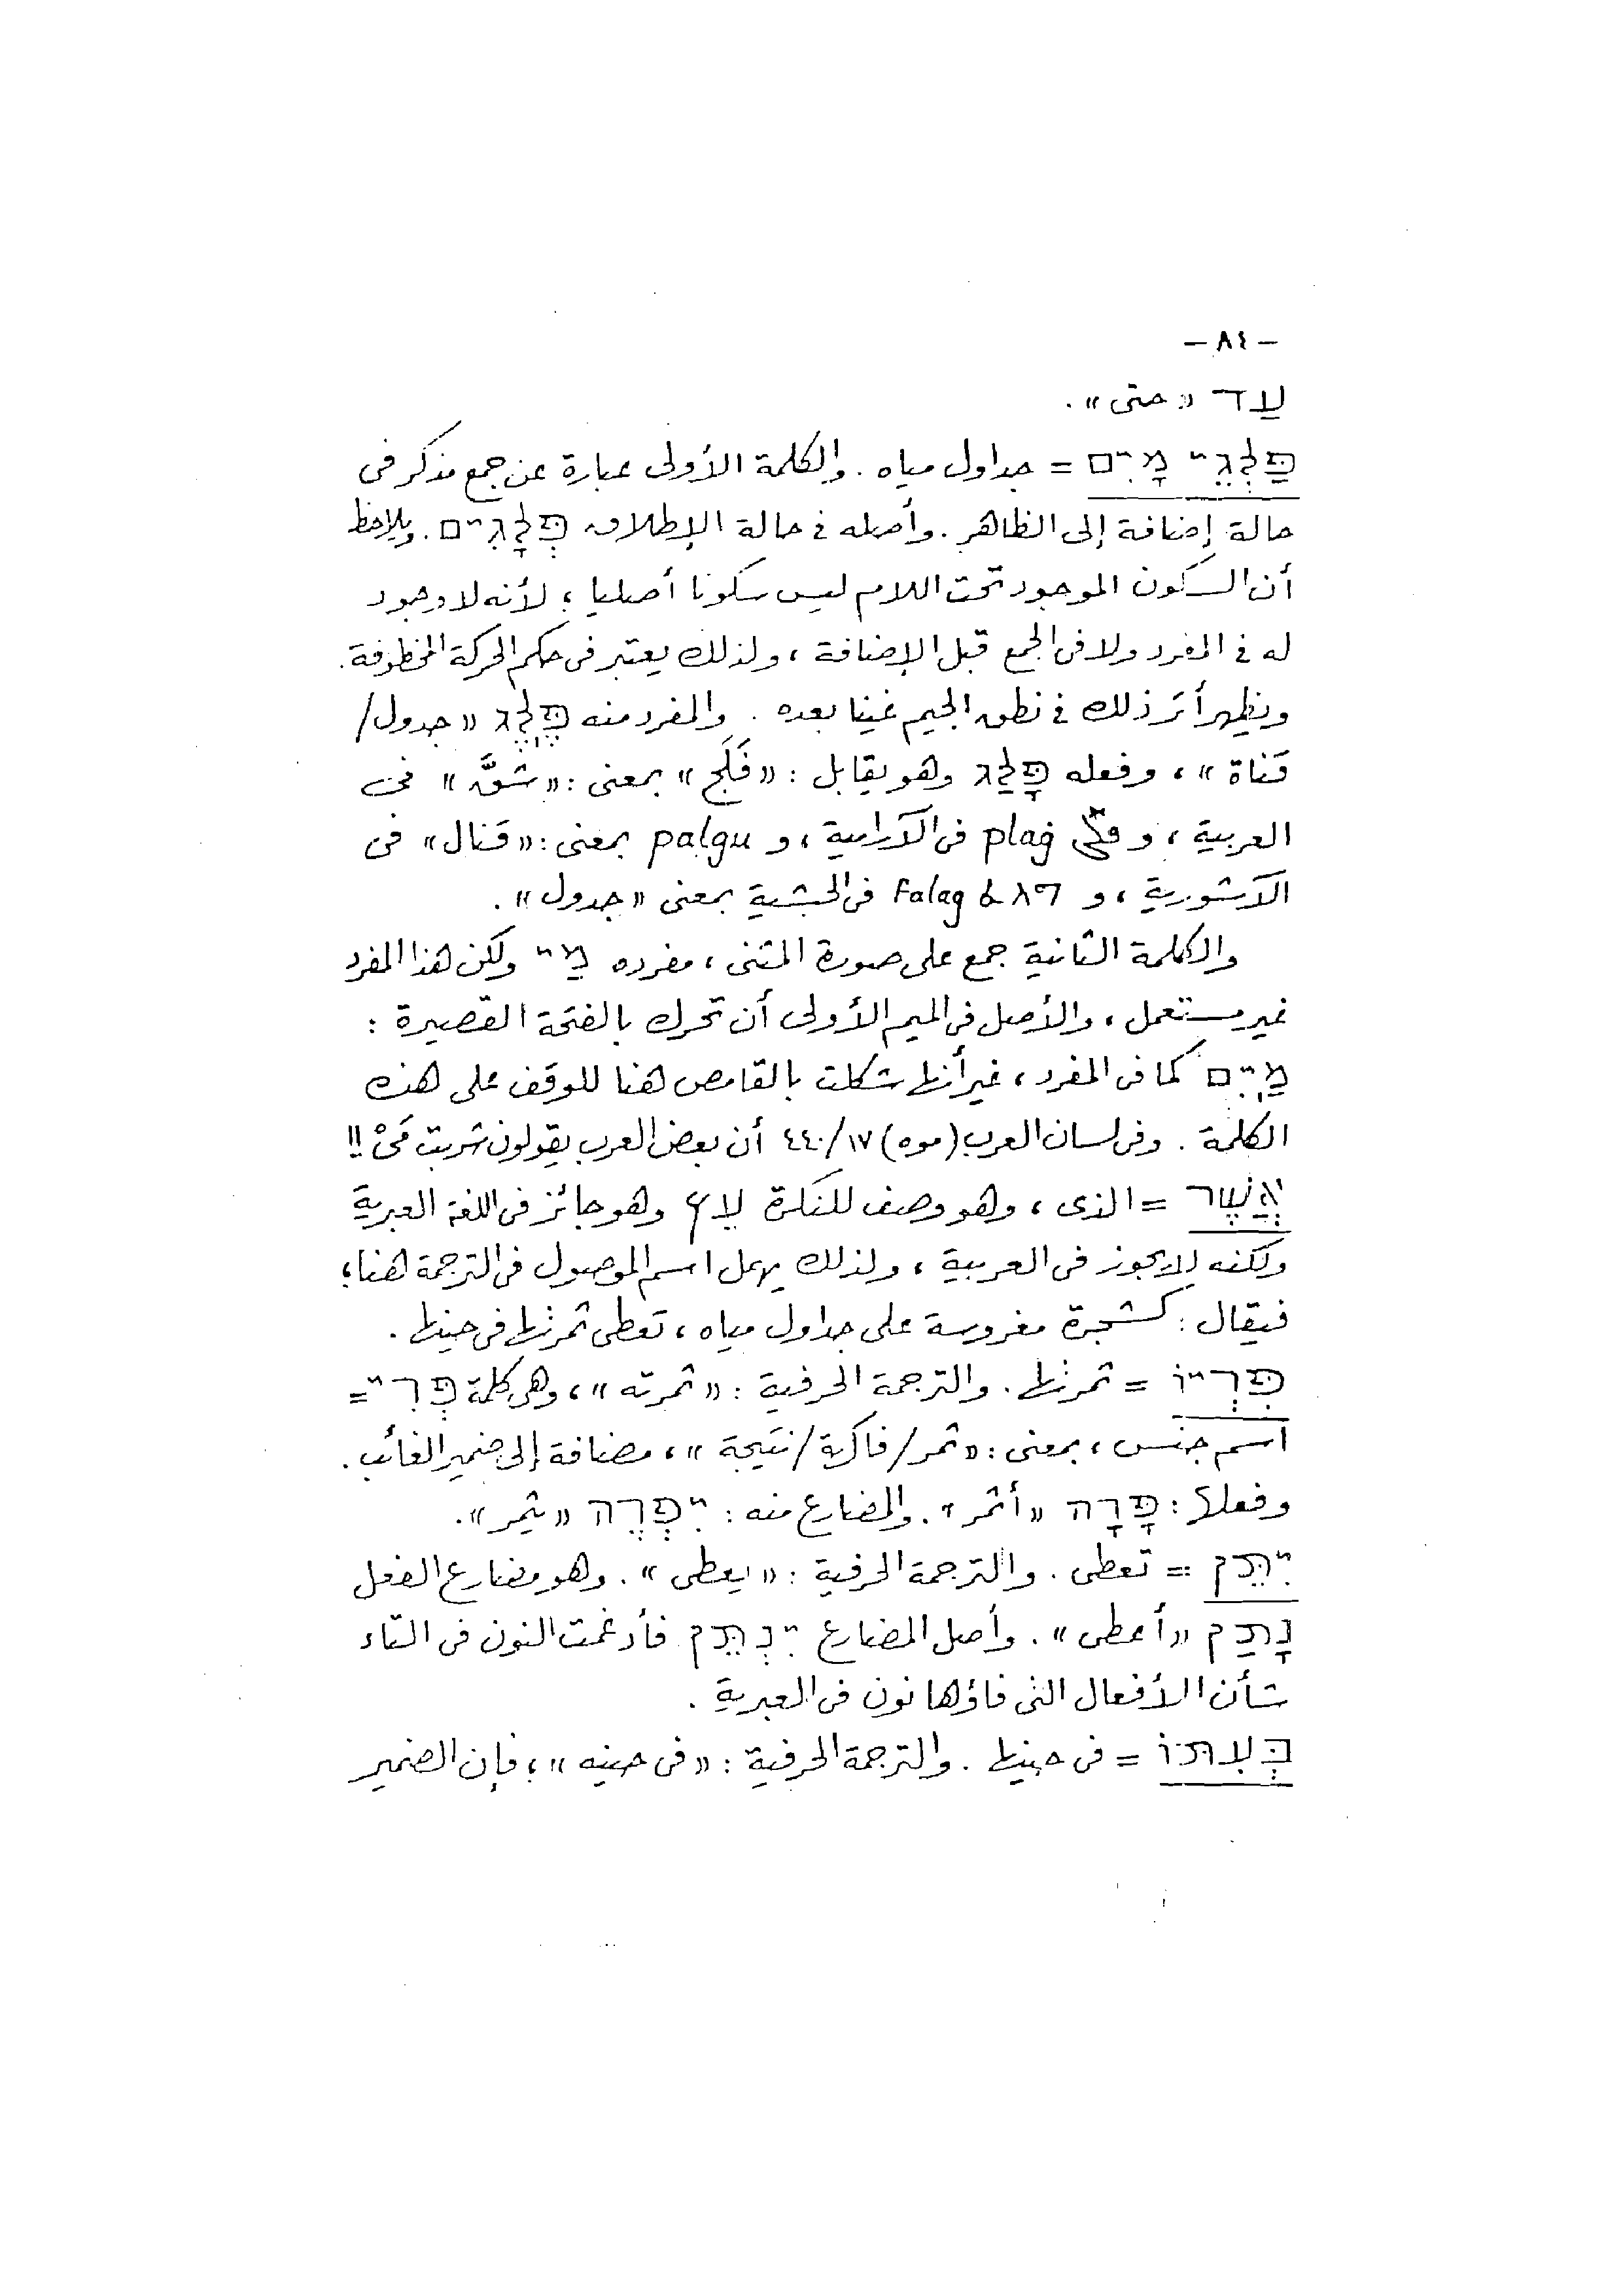 – ٨٤ –
עַד «حتى» .
פַּלְגֵי מָיִם = جداول مياه . والكلمة الأولى عبارة عن جمع مذكر فى
حالة إضافة إلى الظاهر . وأصله فى حالة الإطلاق פְּלָגִים . ويلاحظ
أن السكون الموجود تحت اللام ليس سكونا أصليا ؛ لأنه لا وجود
له فى المفرد ولا فى الجمع قبل الإضافة ، ولذلك يعتبر فى حكم الحركة المخطوفة .
ويظهر أثر ذلك فى نطق الجيم غينا بعده . والمفرد منه פֶּלֶג «جدول/
قناة» ، وفعله פָּלַג وهو يقابل : «فَلَج» بمعنى : «شقَّ» فى
العربية ، و plag فى الآرامية ، و palgu بمعنى : «قنال» فى
الآشورية ، و ፈለግ Falag فى الحبشية بمعنى «جدول» .
والكلمة الثانية جمع على صورة المثنى ، مفرده מַי ولكن هذا المفرد
غير مستعمل ، والأصل فى الميم الأولى أن تحرك بالفتحة القصيرة :
מַיִם كما فى المفرد ، غير أنها شكلت بالقامص هنا للوقف على هذه
الكلمة . وفى لسان العرب (موه) ١٧/ ٤٤٠ أن بعض العرب يقولون شربت مَىْ !!
אֲשֶׁר = الذى ، وهو وصف للنكرة עֵץ وهو جائز فى اللغة العبرية
ولكنه لا يجوز فى العربية ، ولذلك يهمل اسم الموصول فى الترجمة هنا ؛
فيقال : كشجرة مغروسة على جداول مياه ، تعطى ثمرتها فى حينها .
פִּרְיוֹ = ثمرتها . والترجمة الحرفية : «ثمرته» ، وهى كلمة פְּרִי =
اسم جنس ، بمعنى : «ثمر/فاكهة/نتيجة» ، مضافة إلى ضمير الغائب .
وفعلها : פָּרָה «أثمر» . والمضارع منه : יִפְרֶה «يثمر» .
יִתֵּן = تعطى . والترجمة الحرفية : «يعطى» . وهو مضارع الفعل
נָתַן «أعطى» . وأصل المضارع יִנְתֵּן فأدغمت النون فى التاء
شأن الأفعال التى فاؤها نون فى العبرية .
בְּעִתּוֹ = فى حينها . والترجمة الحرفية : «فى حينه» ؛ فإن الضمير